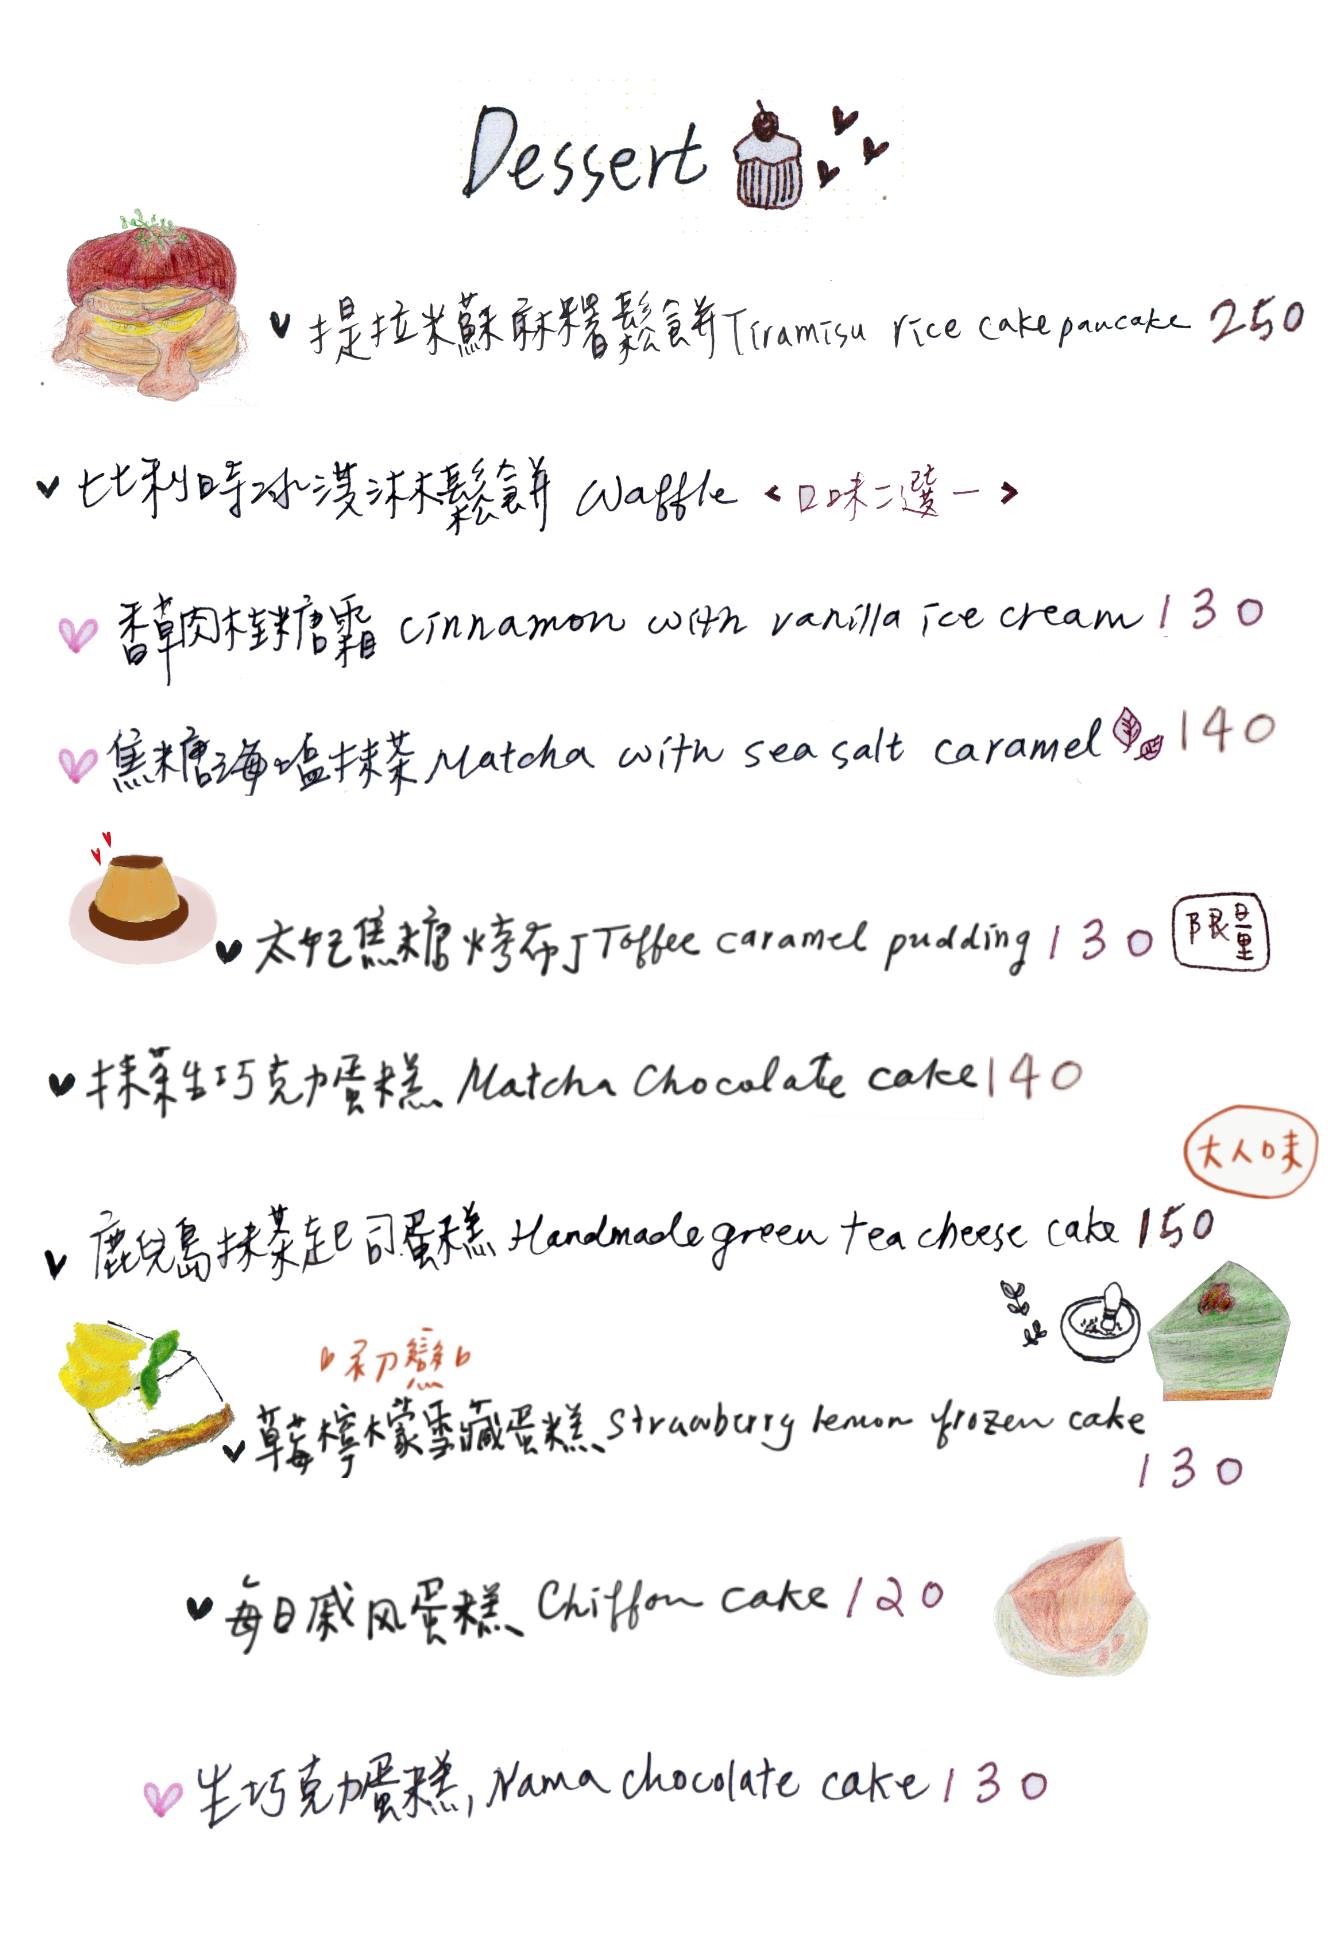 Dessert
提拉米蘇麻糬鬆餅 Tiramisu rice cake pancake 250
比利時冰淇淋鬆餅 Waffle <口味二選一>
香草肉桂糖霜 cinnamon with vanilla ice cream 130
焦糖海塩抹茶 Matcha with sea salt caramel 140
太妃焦糖烤布丁 Toffee caramel pudding 130 限量
抹茶生巧克力蛋糕 Matcha Chocolate cake 140
大人味
鹿兒島抹茶起司蛋糕 Handmade green tea cheese cake 150
初戀
草莓檸檬雪藏蛋糕 Strawberry lemon frozen cake
130
每日戚风蛋糕 Chiffon cake 120
生巧克力蛋糕, Nama chocolate cake 130